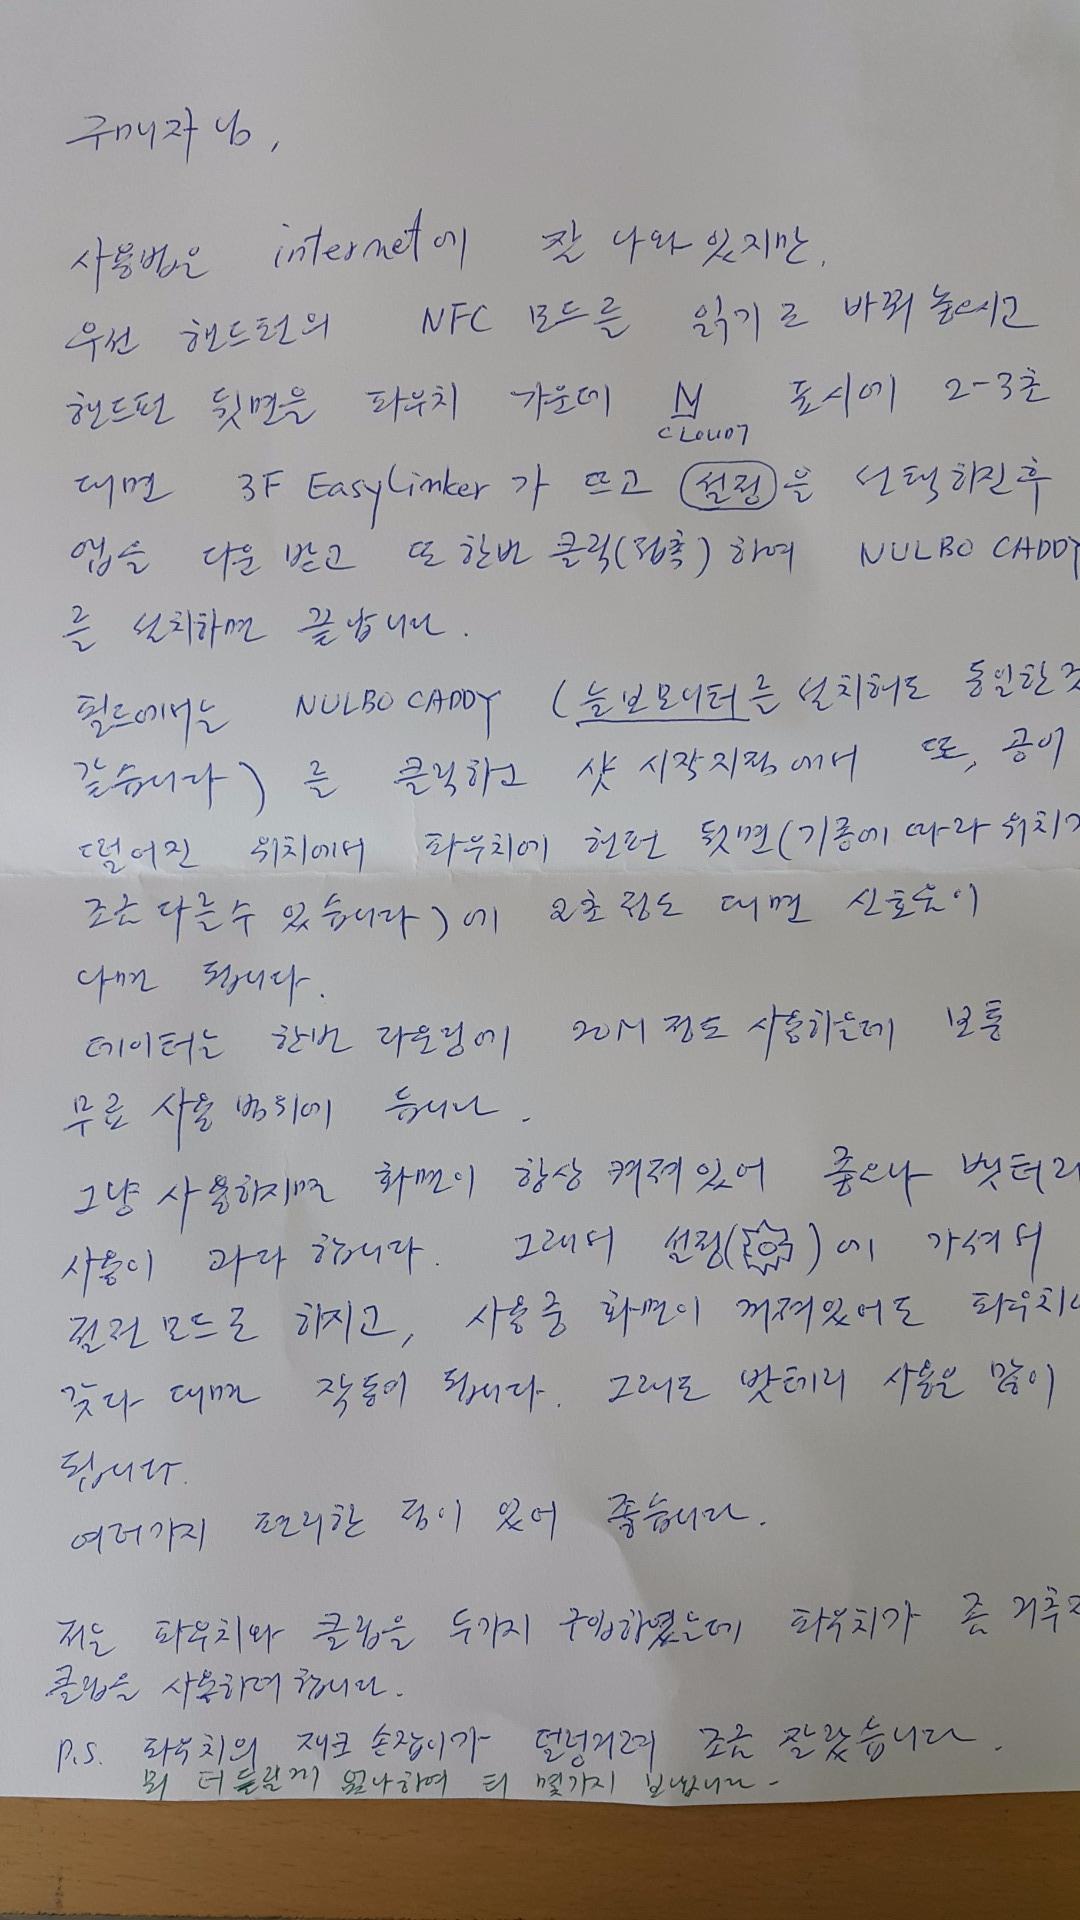 구매자님,
사용법은 internet에 잘 나와 있지만,
우선 핸드폰의 NFC 모드를 읽기로 바꿔 놓으시고
핸드폰 뒷면을 파우치 가운데 N 표시에 2-3초
CLOUD7
대면 3F EasyLinker가 뜨고 설정을 선택하신후
앱을 다운 받고 또 한번 클릭(접촉)하여 NULBO CADDY
를 설치하면 끝납니다.
필드에서는 NULBO CADDY (늘보모이터를 설치해도 동일한것
같습니다)를 클릭하고 샷 시작지점에서 또, 공이
떨어진 위치에서 파우치에 헨펀 뒷면(기종에 따라 위치가
조금 다를수 있습니다)에 2초 정도 대면 신호음이
나면 됩니다.
데이터는 한번 라운딩에 20M 정도 사용하는데 보통
무료 사용 범위에 듭니다.
그냥 사용하시면 화면이 항상 켜져있어 좋으나 뱃터리
사용이 과다 합니다. 그래서 설정()에 가셔서
절전모드로 하시고, 사용중 화면이 꺼져있어도 파우치에
갖다 대면 작동이 됩니다. 그래도 밧테리 사용은 많이
됩니다.
여러가지 편리한 점이 있어 좋습니다.
저는 파우치와 클립을 두가지 구입하였는데 파우치가 좀 거추
클립을 사용하려 합니다.
P.S. 파우치의 쟈크 손잡이가 덜렁거려 조금 잘랐습니다.
뭐 더 드릴게 없나하여 티 몇가지 보냅니다.